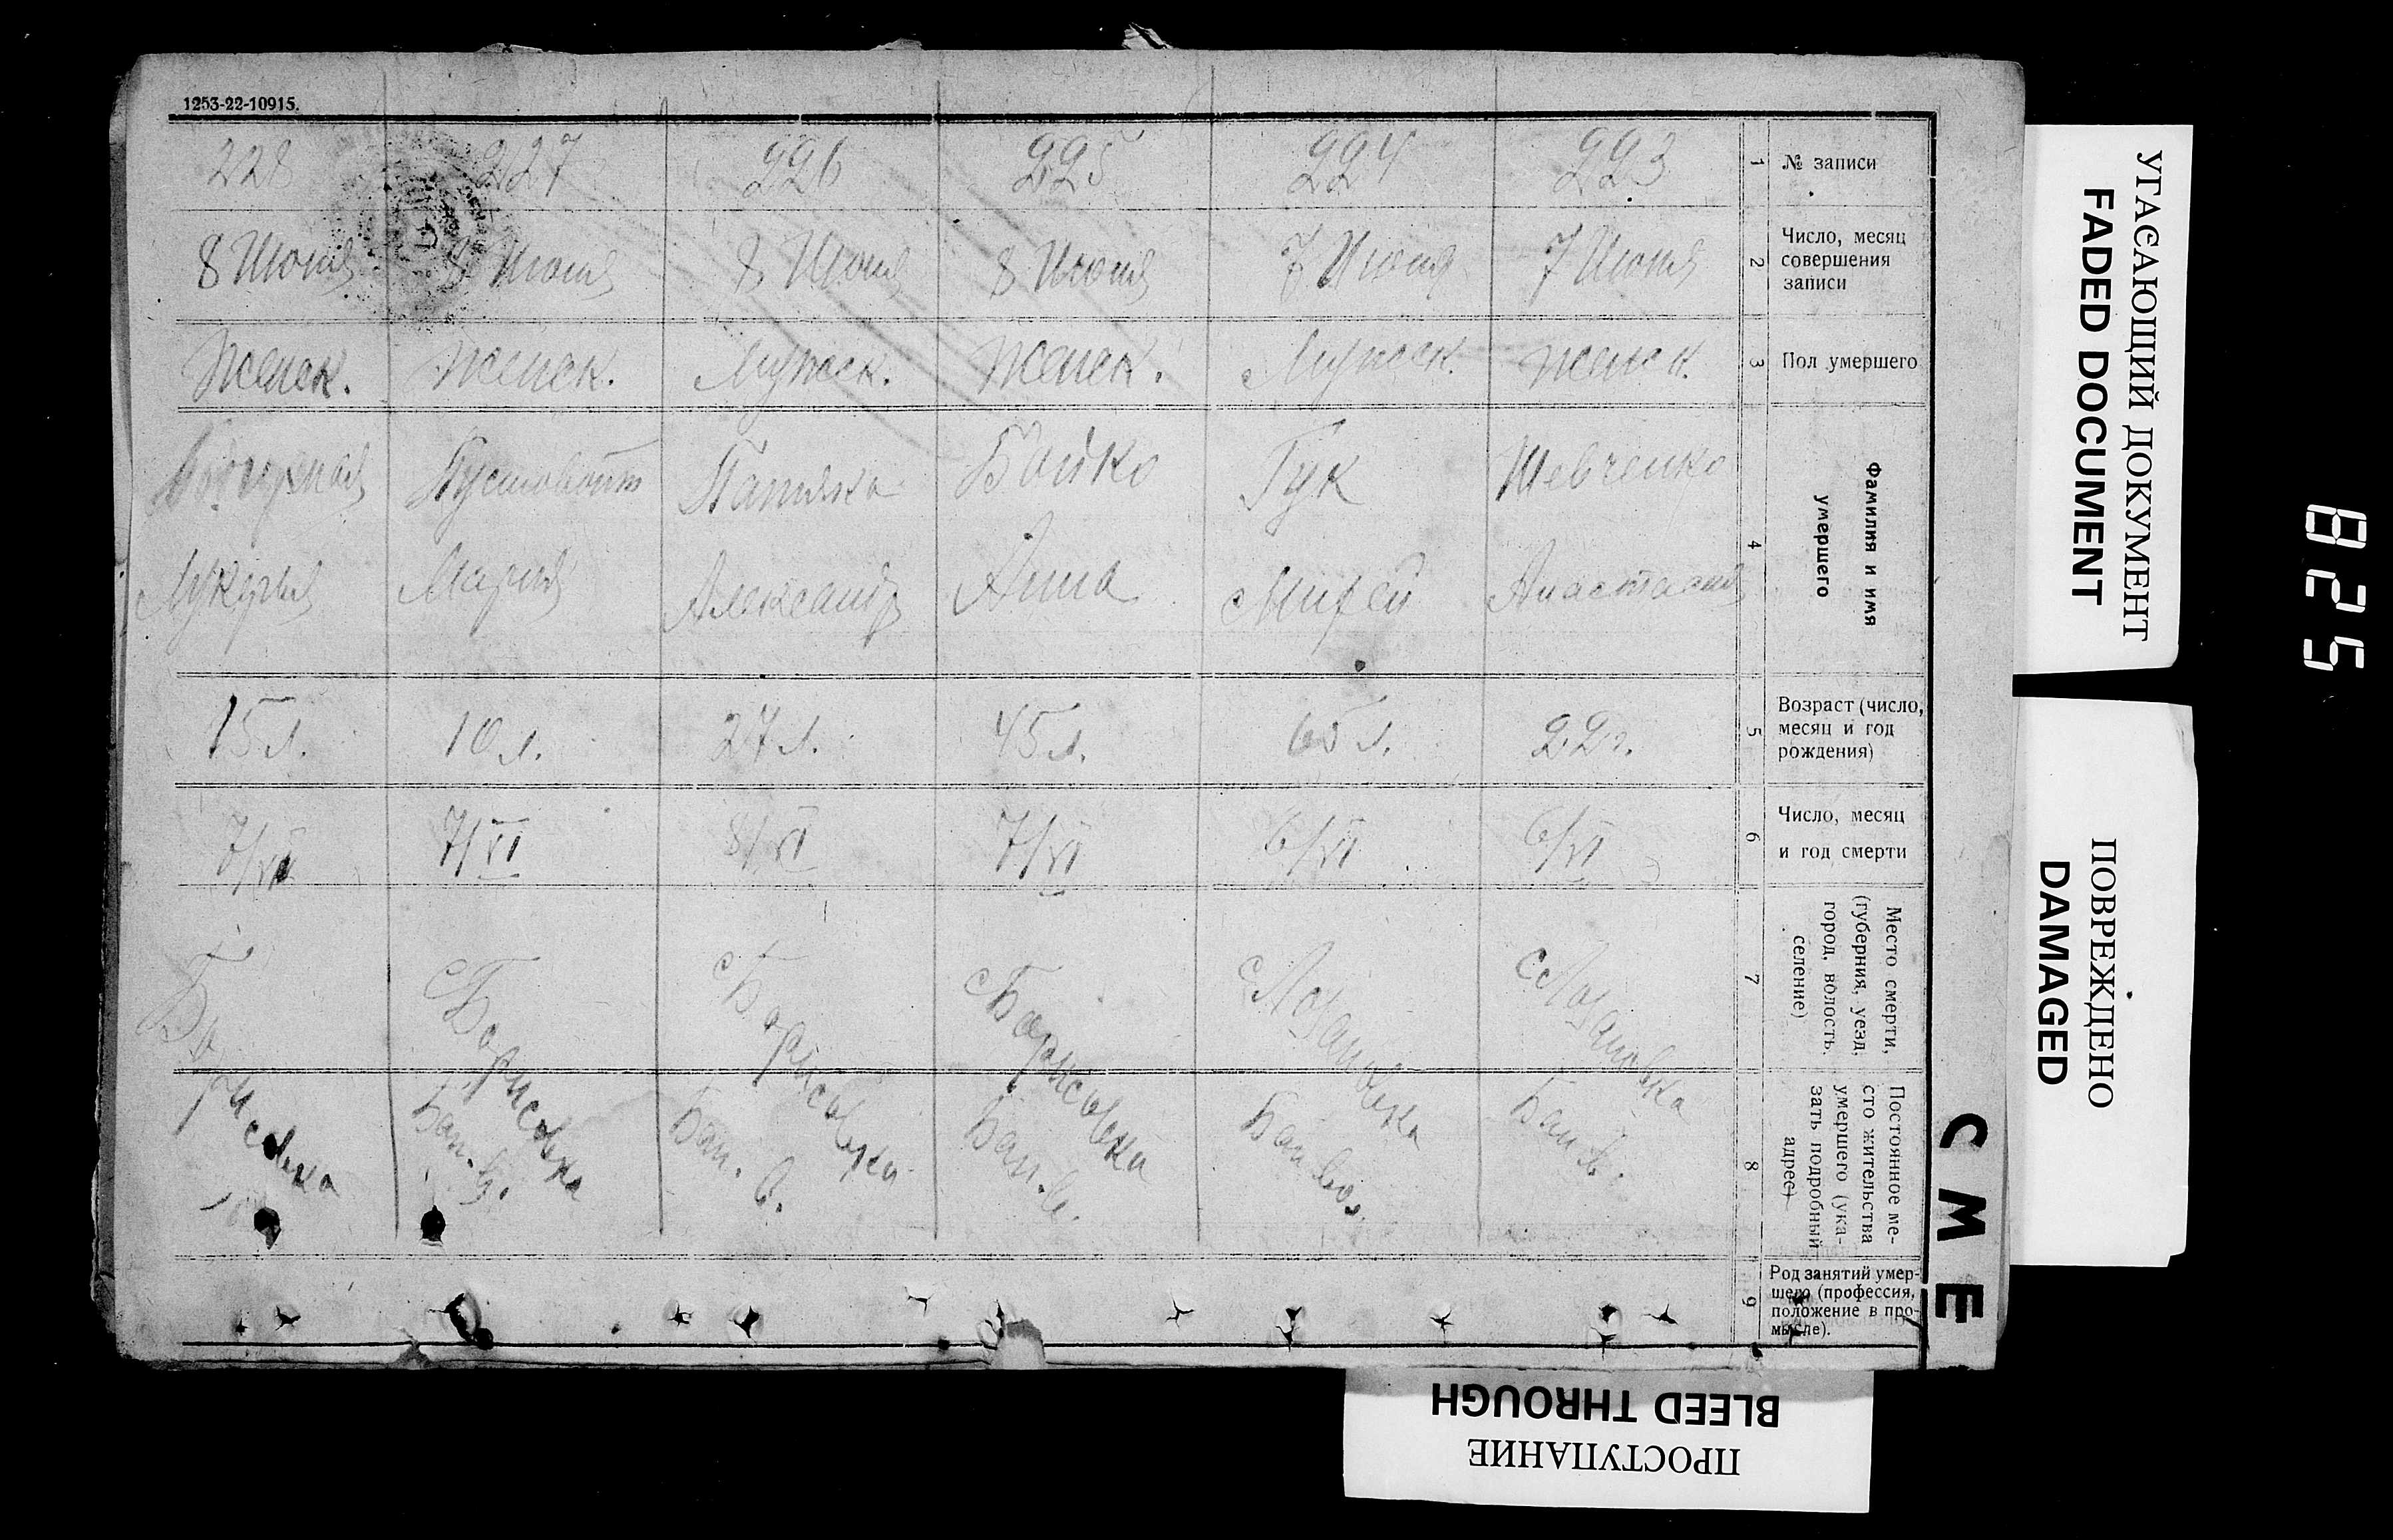 1253-22-10915.
228 227 226 225 224 223 1 № записи
8 Июня 8 Июня 8 Июня 8 Июня 7 Июня 7 Июня 2 Число, месяц
совершения
записи
Женск. Женск. Мужск. Женск. Мужск. Женск. 3 Пол умершего
Пустовойт Бойко Гук Шевченко 4 Фамилия и имя
умершего
Лукерья Мария Александр Анна Мифей Анастасия
15 л. 10 л. 27 л. 45 л. 65 л. 22 г. 5 Возраст (число,
месяц и год
рождения)
7/VI 7/VI 8/VI 7/VI 6/VI 6/VI 6 Число, месяц
и год смерти
Борисовка с Борисовка с Борисовка с Борисовка с Лозановка с Лозановка 7 Место смерти,
(губерния, уезд,
город, волость,
селение)
Бан. в. Бан. в. Бан. в. Бан вол Бан в. 8 Постоянное ме-
сто жительства
умершего (ука-
зать подробный
адрес)
9 Род занятий умер-
шего (профессия,
положение в про-
мысле).
УГАСАЮЩИЙ ДОКУМЕНТ
FADED DOCUMENT
ПОВРЕЖДЕНО
DAMAGED
СМЕ
825
BLEED THROUGH
ПРОСТУПАНИЕ